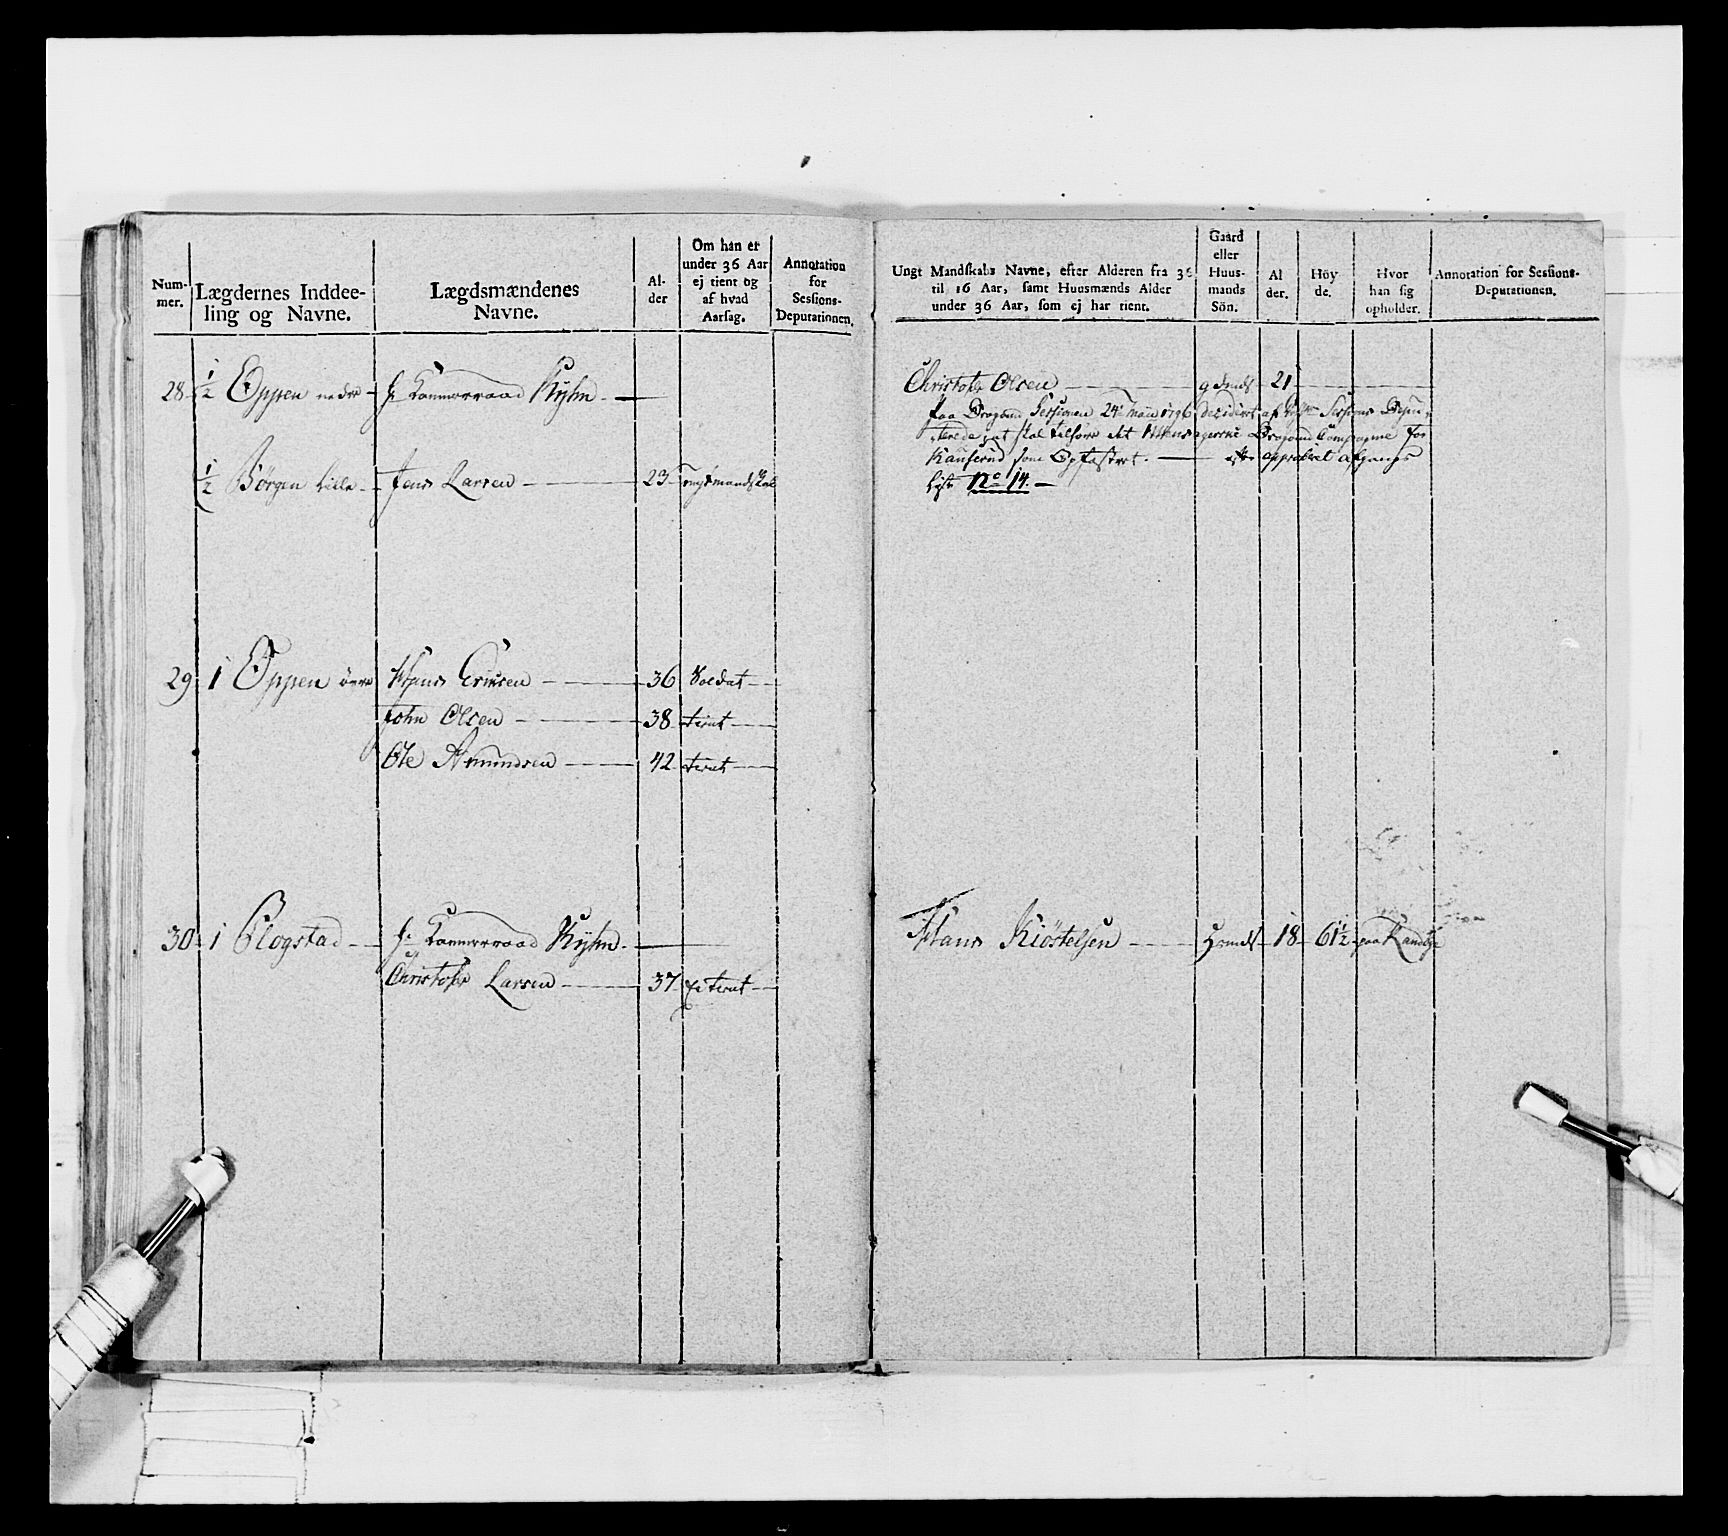 Num-
mer.
Lægdernes Inddee-
ling og Navne.
Lægdsmændenes
Navne.
Al-
der
Om han er
under 36 Aar
ej tient og
af hvad
Aarsag.
Annotation
for
Sessions-
Deputationen.
28 1/2 Oppen nedre hr Kammerraad Kyhn
1/2 Børgen lille Jens Larsen 23
29 1 Oppen övre Hans Ericsen 36 Soldat
John Olsen 38 tient
Ole Amundsen 42 tient
30 1 Blogstad hr Kammerraad Kyhn
Christofer Larsen 37 Ei tient
Ungt Mandskabs Navne, efter Alderen fra 36
til 16 Aar, samt Huusmænds Alder
under 36 Aar, som ej har tient.
Gaard
eller
Huus-
mands
Sön.
Al
der.
Höy
de.
Hvor
han sig
opholder.
Annotation for Sessions-
Deputationen.
Christofer Olsen gdmds 21
paa Dragoun Sessionen 24 1796 Decideret af Sessions Depu-
terede, at skal tilhøre det Dragoun Compagnie for
som Opfostret. approberet afgangs
liste No 14.
Hans Kiöstelsen Hsmds 18 61 1/2 paa